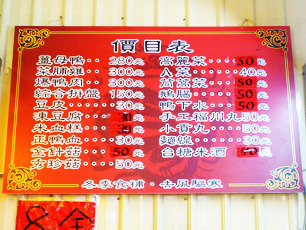 價目表
薑母鴨‥280元
菜脯雞‥300元
爆鴨肉‥300元
綜合拼盤 150元
豆皮‥‥30元
凍豆腐‥30元
米血糕‥元
正鴨血‥30元
金針菇‥50元
杏珍菇‥50元
高麗菜‥50元
A菜‥‥40元
茼蒿菜‥50元
鵝腸‥‥50元
鴨下水‥50元
手工福州丸50元
小貢丸‥50元
麵線‥‥30元
白糖米酒 元
冬季食補·去風驅寒